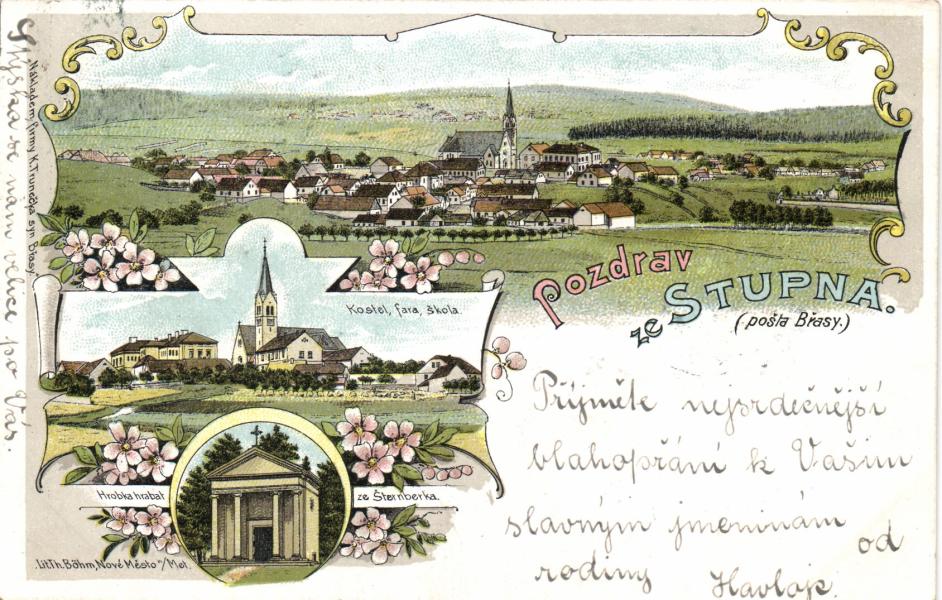 Pozdrav
ze STUPNA.
(pošta Břasy.)
Kostel, fara, škola.
Hrobka hrabat
ze Šternberka.
Lit.Th.Böhm, Nové Město n/Met.
Nákladem firmy K. Trunečka syn Břasy.
Stýská se nám velice po Vás.
Přijměte nejsrdečnější
blahopřání k Vašim
slavným jmeninám
od
rodiny